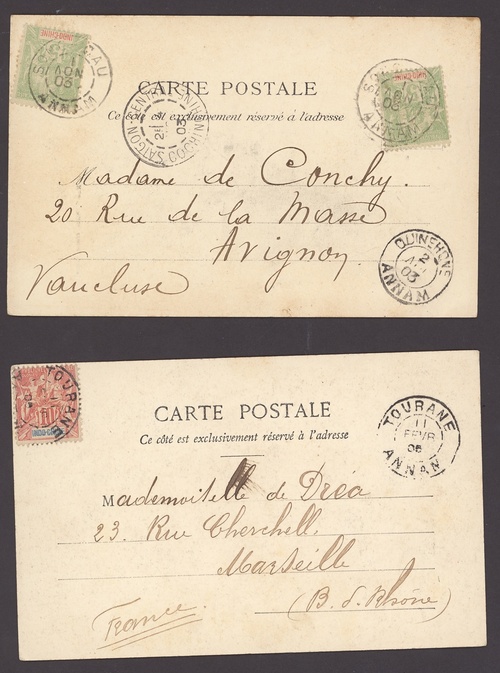 INDO-CHINE
NOV
03
ANNAM
INDO-CHINE
03
ANNAM
CARTE POSTALE
Ce côté est exclusivement réservé à l'adresse
SAIGON-CENTRAL
COCHINCHINE
03
Madame de Conchy.
20 Rue de la Masse
Avignon
Vaucluse
QUINHONE
2
03
ANNAM
TOURANE
INDO-CHINE
CARTE POSTALE
Ce côté est exclusivement réservé à l'adresse
TOURANE
11
FEVR
05
ANNAM
Mademoiselle de Dréa
23. Rue Cherchell.
Marseille
(B. d. Rhône)
France.